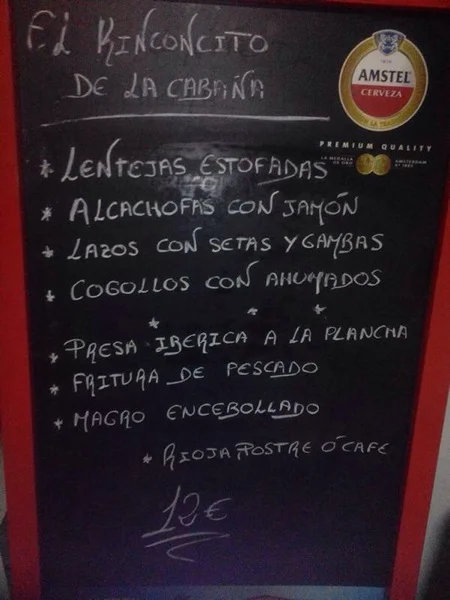 EL RINCONCITO
DE LA CABAÑA
AMSTEL
CERVEZA
PREMIUM QUALITY
LA MEDALLA DE ORO
AMSTERDAM
* LENTEJAS ESTOFADAS
* ALCACHOFAS CON JAMÓN
* LAZOS CON SETAS Y GAMBAS
* COGOLLOS CON AHUMADOS
* * *
* PRESA IBERICA A LA PLANCHA
* FRITURA DE PESCADO
* MAGRO ENCEBOLLADO
* RIOJA, POSTRE Ó CAFE
12€